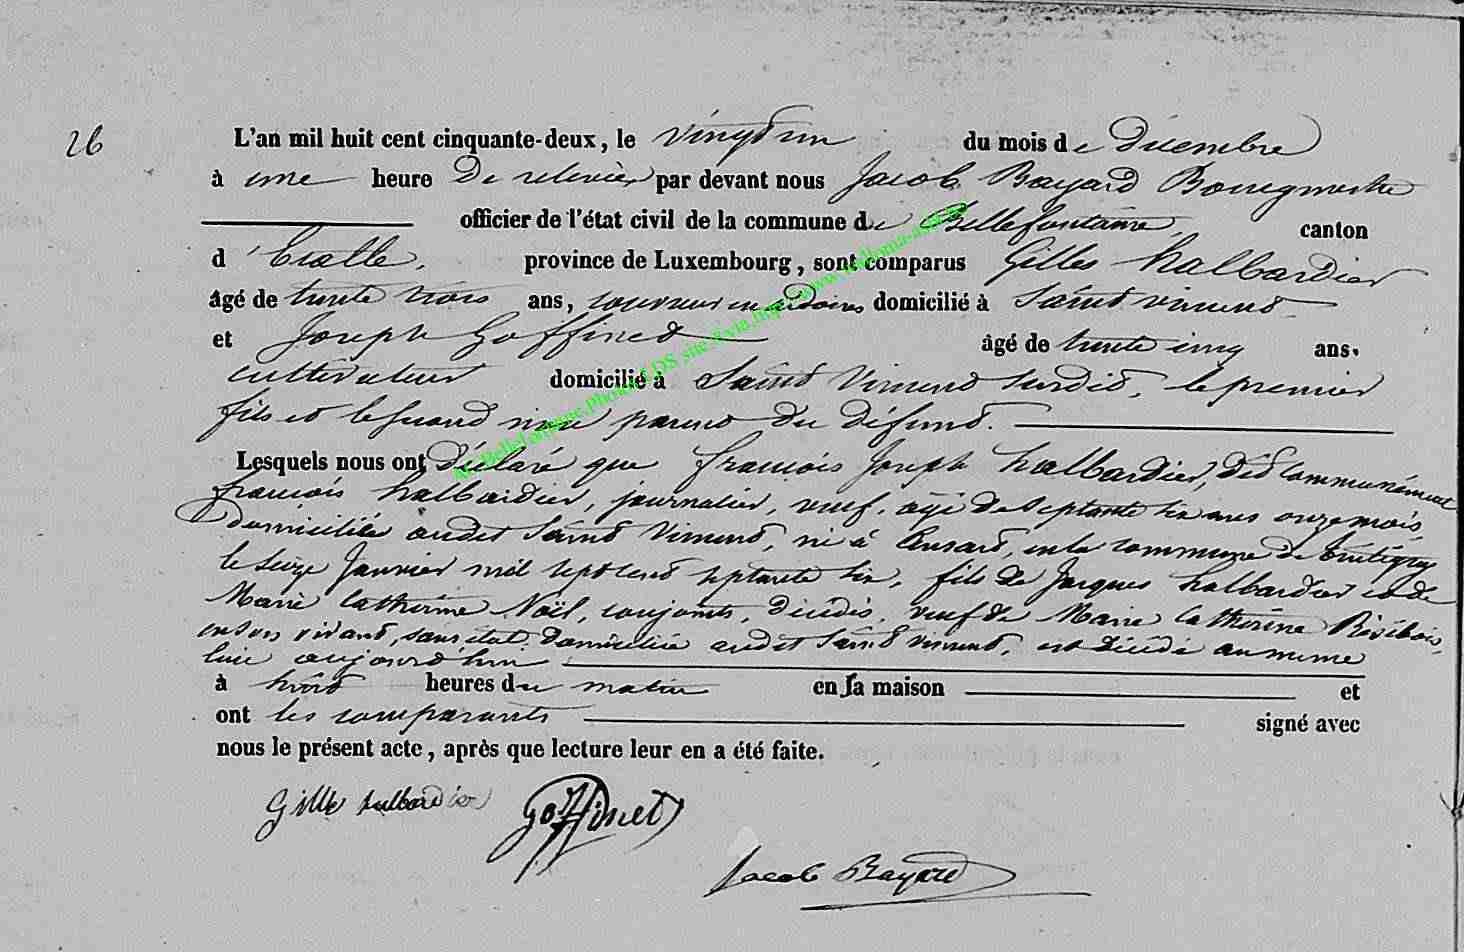 26
L'an mil huit cent cinquante-deux, le vingt un du mois de Décembre
à une heure de relevée par devant nous Jacob Bayard Bourgmestre
officier de l'état civil de la commune de Bellefontaine, canton
d'Etalle, province de Luxembourg, sont comparus Gilles halbardier
âgé de trente trois ans, couvreur en ardoises domicilié à Saint Vincent
et Joseph Goffinet âgé de trente cinq ans.
cultivateur domicilié à Saint Vincent susdit, le premier
fils et le second non parent du défunt.
Lesquels nous ont déclaré que françois Joseph halbardier, dit communément
françois halbardier, journalier, veuf, agé de septante six ans onze mois,
domiciliée audit Saint Vincent, né à Ansart, en la commune de tintigny
le seize Janvier mil sept cent septante six, fils de Jacques halbardier et de
Marie Catherine Noël, conjoints, décédés, veuf de Marie Catherine Résibois,
en son vivant, sans état, domiciliée audit Saint Vincent, est décédé au même
lieu aujourd'hui
à huit heures du matin en sa maison et
ont les comparants signé avec
nous le présent acte, après que lecture leur en a été faite.
Gille halbardier Goffinet
Jacob Bayard